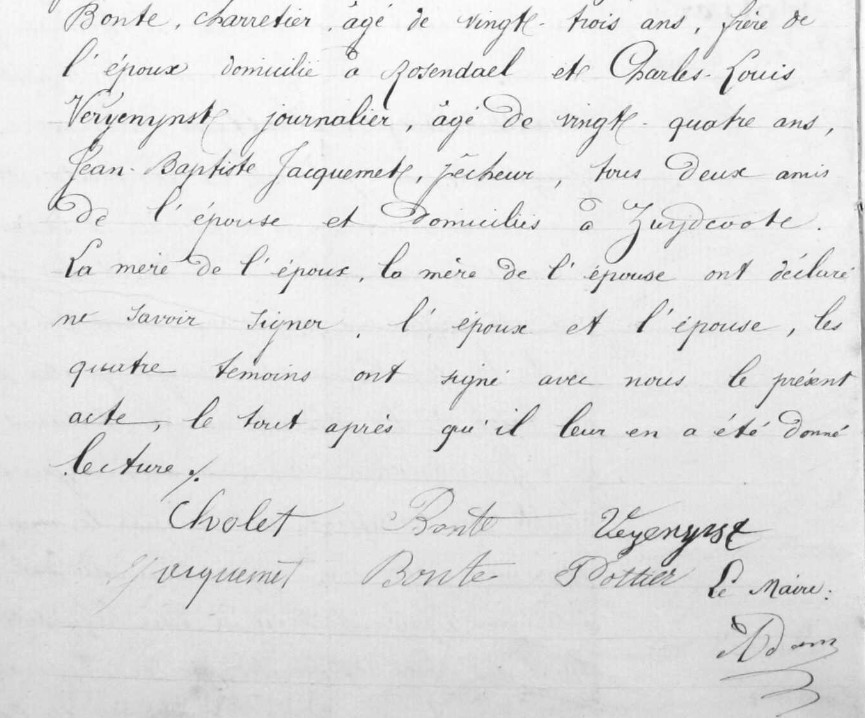 Bonte, charretier, âgé de vingt-trois ans, frère de
l'époux domicilié à Rosendael et Charles-Louis
Veryenynst, journalier, âgé de vingt-quatre ans,
Jean-Baptiste Jacquemet, pêcheur, tous deux amis
de l'épouse et domiciliés à Zuydcoote.
La mère de l'époux, la mère de l'épouse ont déclaré
ne savoir signer. l'époux et l'épouse, les
quatre témoins ont signé avec nous le présent
acte, le tout après qu'il leur en a été donné
lecture ./.
Cholet Bonte Veyenynst
Jacquemet Bonte Pottier Le Maire:
Adam